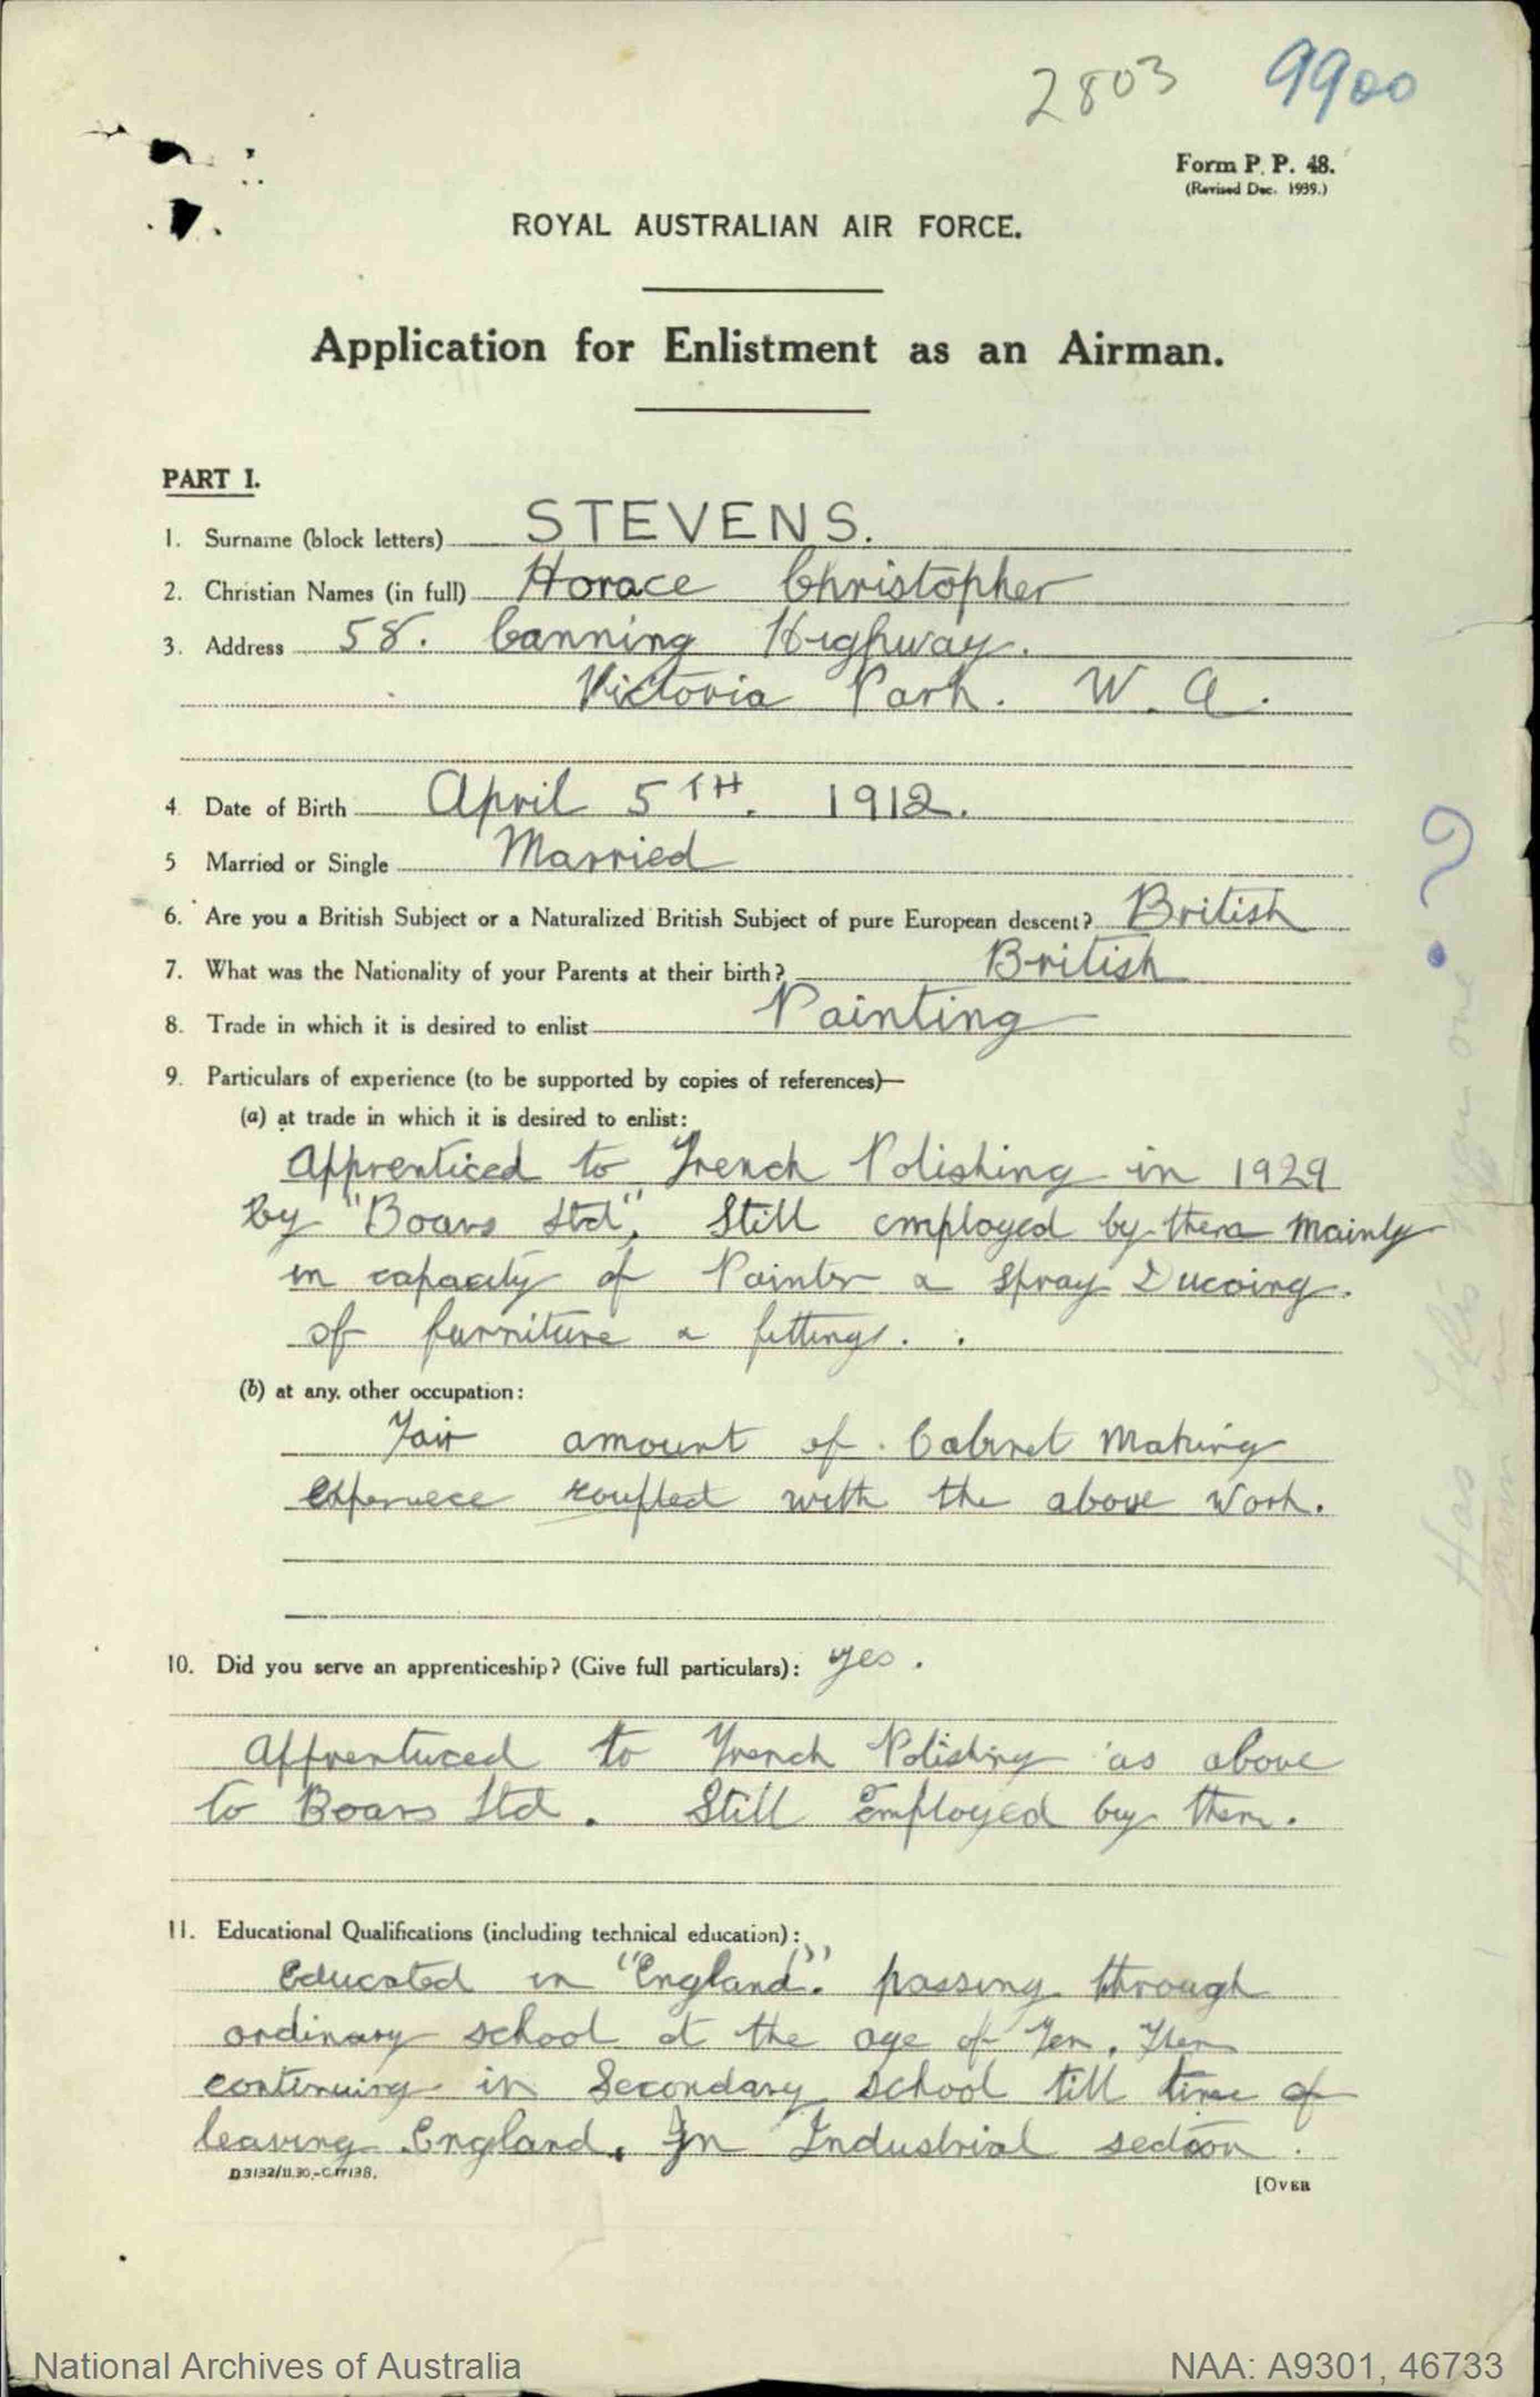 2803 9900
Form P. P. 48.
(Revised Dec. 1939.)
ROYAL AUSTRALIAN AIR FORCE.
Application for Enlistment as an Airman.
PART I.
1. Surname (block letters) STEVENS.
2. Christian Names (in full) Horace Christopher
3. Address 58. Canning Highway.
Victoria Park. W. A.
4. Date of Birth April 5TH. 1912.
5 Married or Single Married
6. Are you a British Subject or a Naturalized British Subject of pure European descent? British
7. What was the Nationality of your Parents at their birth? British
8. Trade in which it is desired to enlist Painting
9. Particulars of experience (to be supported by copies of references)—
(a) at trade in which it is desired to enlist:
Apprenticed to French Polishing in 1929
by "Boans Ltd", Still employed by them mainly
in capacity of Painter & Spray Ducoing.
of furniture & fittings. .
(b) at any other occupation:
Fair amount of Cabinet Making
coupled with the above Work.
10. Did you serve an apprenticeship? (Give full particulars): yes.
Apprenticed to French Polishing as above
to Boans Ltd. Still Employed by them.
11. Educational Qualifications (including technical education):
Educated in "England". passing through
ordinary school at the age of Ten. Then
continuing in Secondary School till time of
leaving England. In Industrial section.
D.3132/11.39.—C.17138.
[OVER
National Archives of Australia
NAA: A9301, 46733